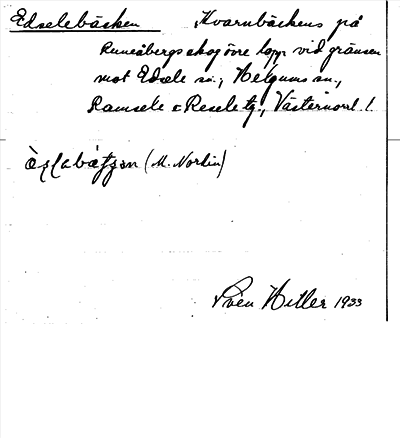 Edselebäcken Kvarnbäckens på
Runnåbergs skog övre lopp vid gränsen
mot Edsele sn., Helgums sn.,
Ramsele o Resele tg., Västernorrl. l.
(M. Norlin)
Sven Hitler 1933